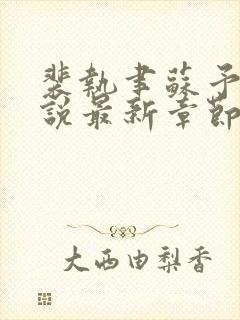 裴執聿蘇予
說最新章節
大西由梨香